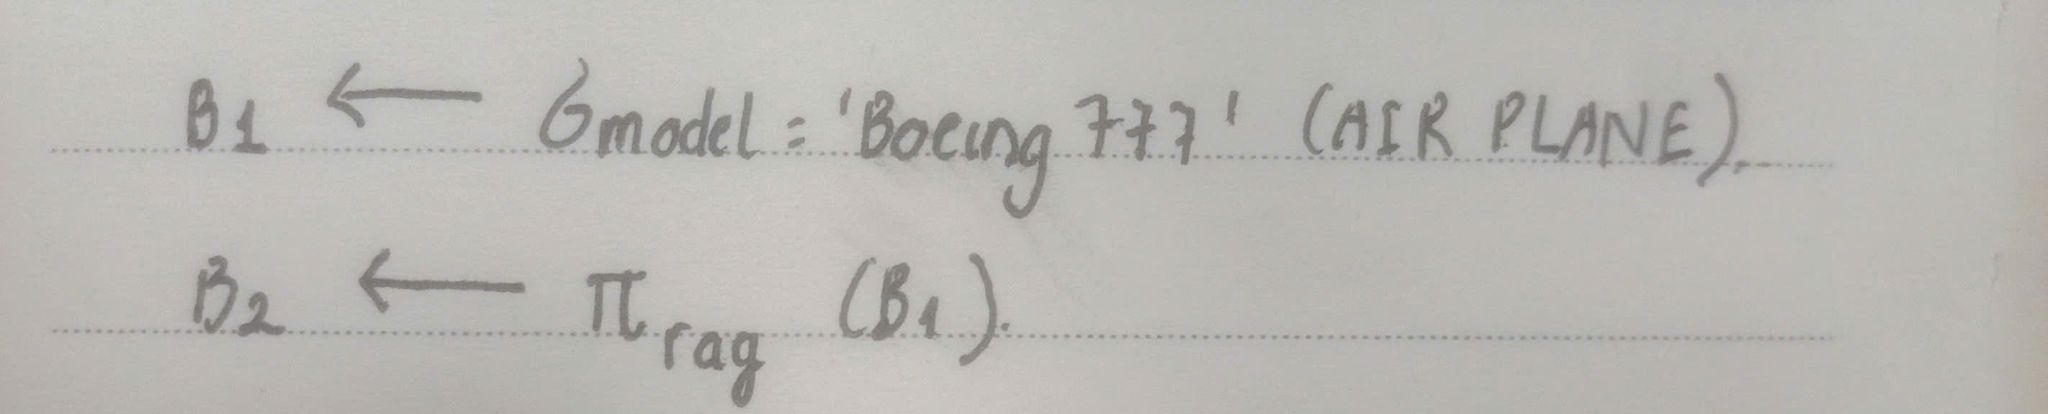 B1 ← σ model = 'Boeing 777' (AIR PLANE).
B2 ← π rag (B1).